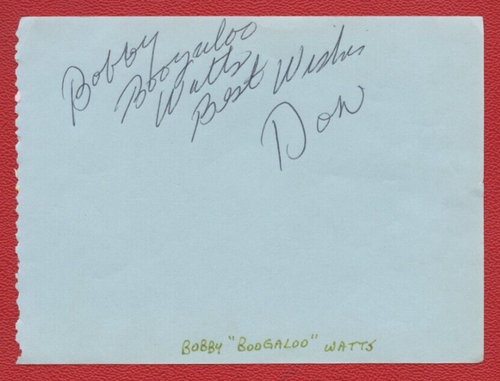 Bobby
Boogaloo
Watts
Best Wishes
Don
BOBBY "BOOGALOO" WATTS